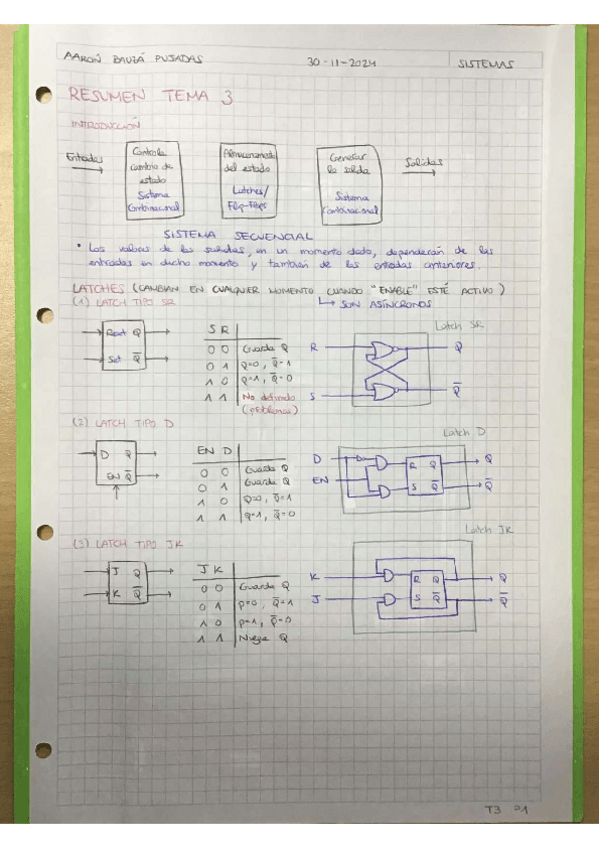 AARON BAUZÁ PUJADAS 30-11-2024 SISTEMAS
RESUMEN TEMA 3
INTRODUCCIÓN
Entradas
Controla
cambio de
estado
Sistema
Combinacional
del estado
Latches/
Flip-Flops
Generar
la salida
Sistema
Combinacional
Salidas
SISTEMA SECUENCIAL
• Los valores de las salidas, en un momento dado, dependerán de las
entradas en dicho momento y también de las entradas anteriores.
LATCHES (CAMBIAN EN CUALQUIER MOMENTO CUANDO "ENABLE" ESTÉ ACTIVO)
↳ SON ASÍNCRONOS
(1) LATCH TIPO SR
Reset Q
Set Q̅
S R
0 0 Guarda Q
0 1 Q=0, Q̅=1
1 0 Q=1, Q̅=0
1 1 No definido
(problemas)
Latch SR
R Q
S Q̅
(2) LATCH TIPO D
D Q
EN Q̅
EN D
0 0 Guarda Q
0 1 Guarda Q
1 0 Q=0, Q̅=1
1 1 Q=1, Q̅=0
Latch D
D R Q Q
EN S Q̅ Q̅
(3) LATCH TIPO JK
J Q
K Q̅
J K
0 0 Guarda Q
0 1 Q=0, Q̅=1
1 0 Q=1, Q̅=0
1 1 Niega Q
Latch JK
K R Q Q
J S Q̅ Q̅
T3 P1